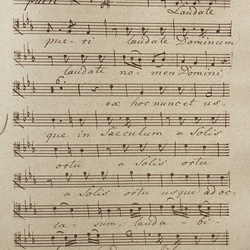 pueri Laudate
pu - e - ri laudate Dominum
laudate no - men Domini
ex hoc nunc et us -
que in Saeculum a Solis
ortu a Solis ortu
a Solis ortu usque ad oc -
ca - sum, lauda - bi -